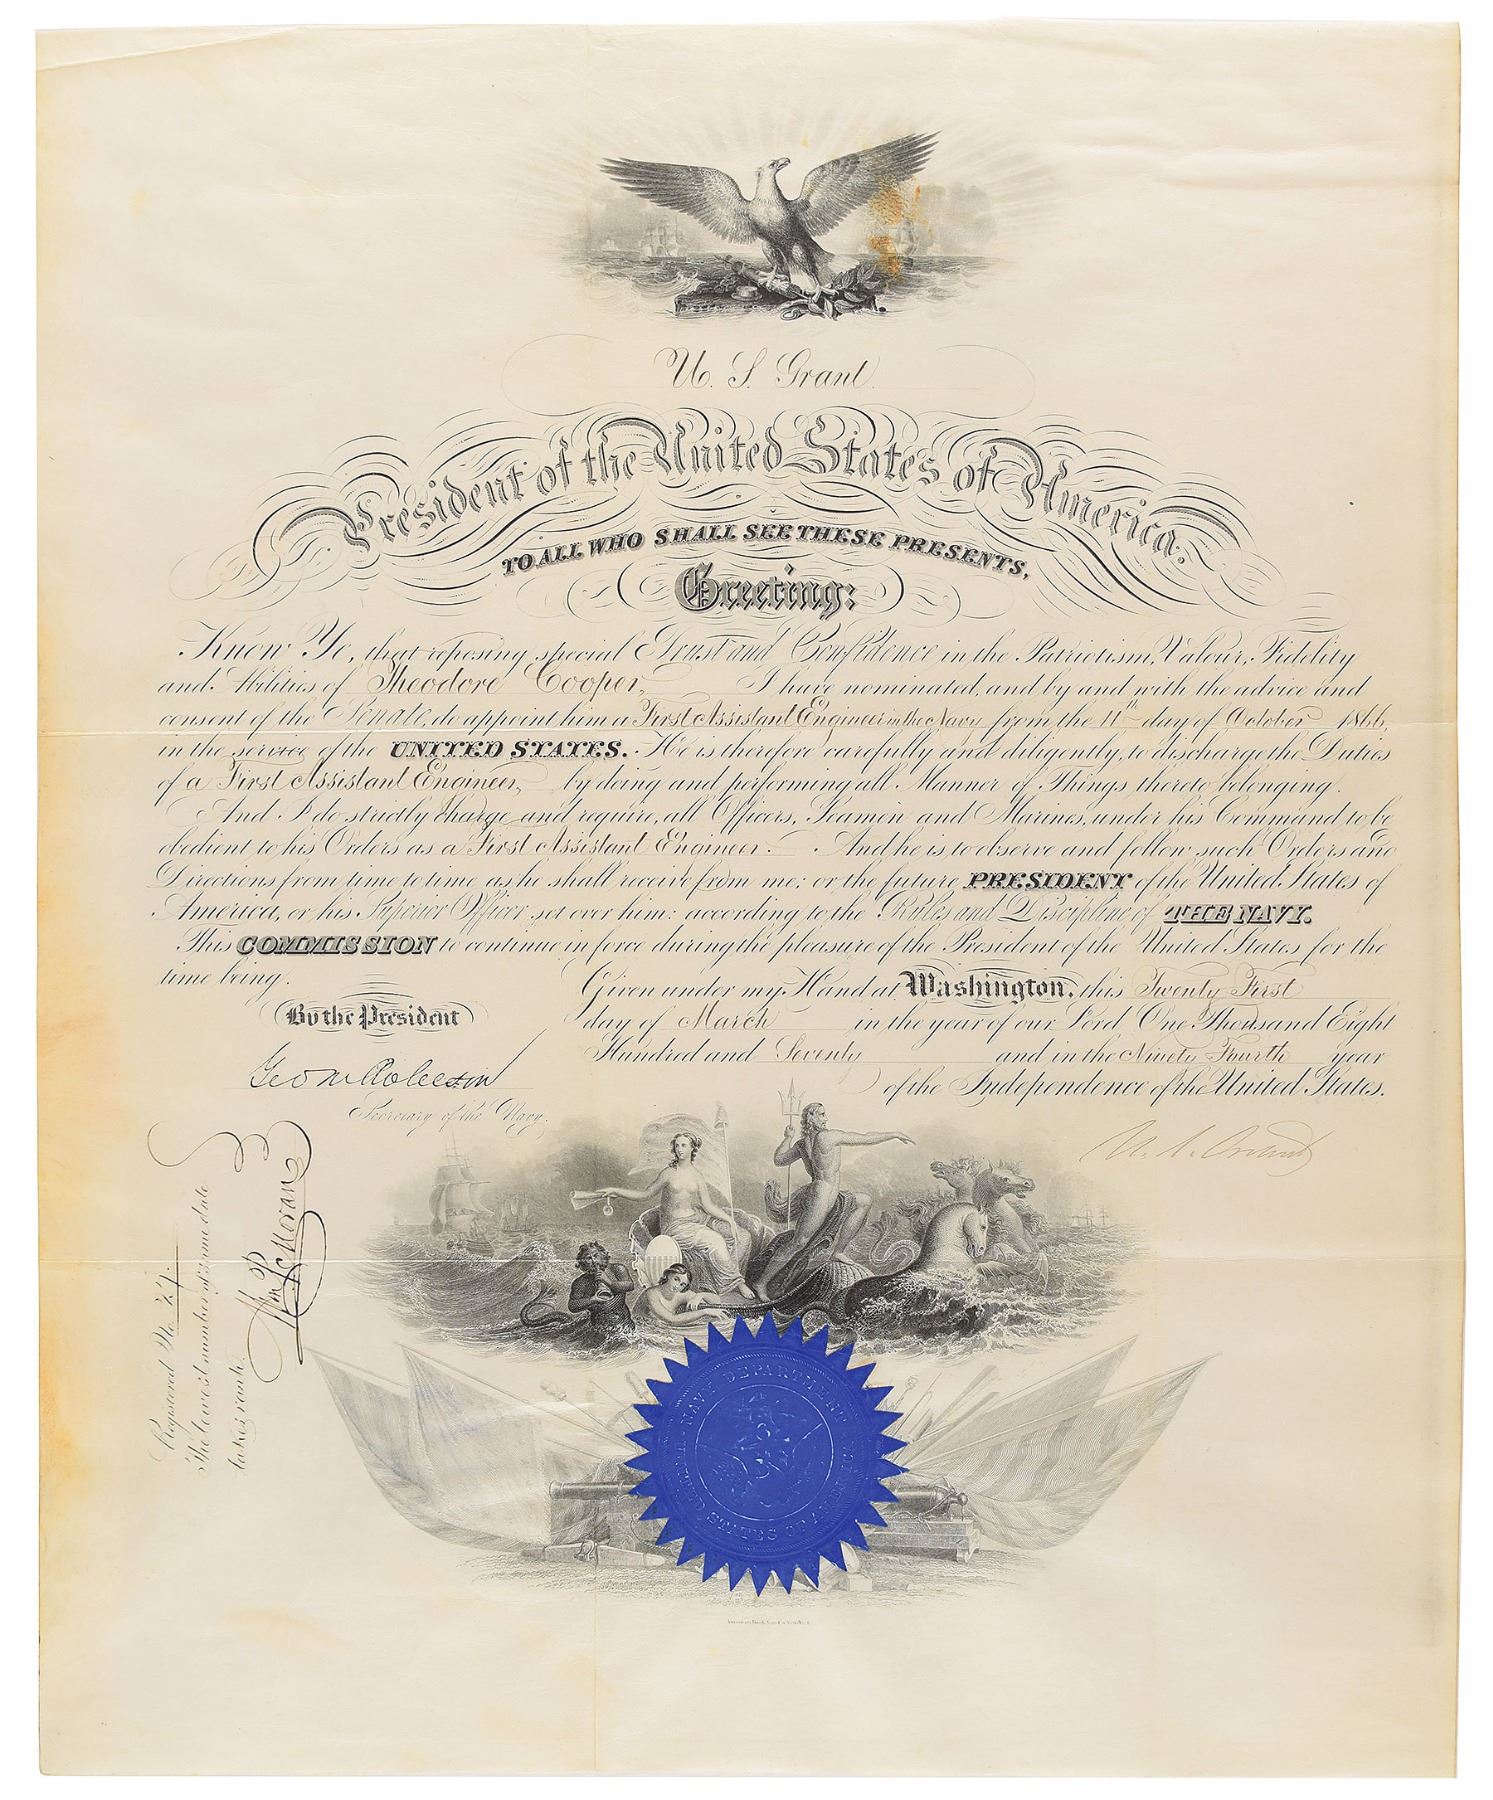 U. S. Grant.
President of the United States of America.
TO ALL WHO SHALL SEE THESE PRESENTS,
Greeting:
Know Ye, that reposing special Trust and Confidence in the Patriotism, Valour, Fidelity
and Abilities of Theodore Cooper, I have nominated, and by and with the advice and
consent of the Senate, do appoint him a First Assistant Engineer in the Navy from the 11th day of October 1866,
in the service of the UNITED STATES. He is therefore carefully and diligently, to discharge the Duties
of a First Assistant Engineer, by doing and performing all Manner of Things thereto belonging.
And I do strictly charge and require, all Officers, Seamen and Marines, under his Command to be
obedient to his Orders as a First Assistant Engineer. And he is to observe and follow such Orders and
Directions from time to time as he shall receive from me; or, the future PRESIDENT of the United States of
America, or his Superior Officer set over him: according to the Rules and Discipline of THE NAVY.
This COMMISSION to continue in force during the pleasure of the President of the United States for the
time being.
Given under my Hand at Washington, this Twenty First
day of March in the year of our Lord One Thousand Eight
Hundred and Seventy and in the Ninety Fourth year
of the Independence of the United States.
By the President
Geo M Robeson
Secretary of the Navy.
U. S. Grant
Registered No. 27.
The lowest number of same date
takes rank.
Wm P McMoran
NAVY DEPARTMENT
UNITED STATES OF AMERICA